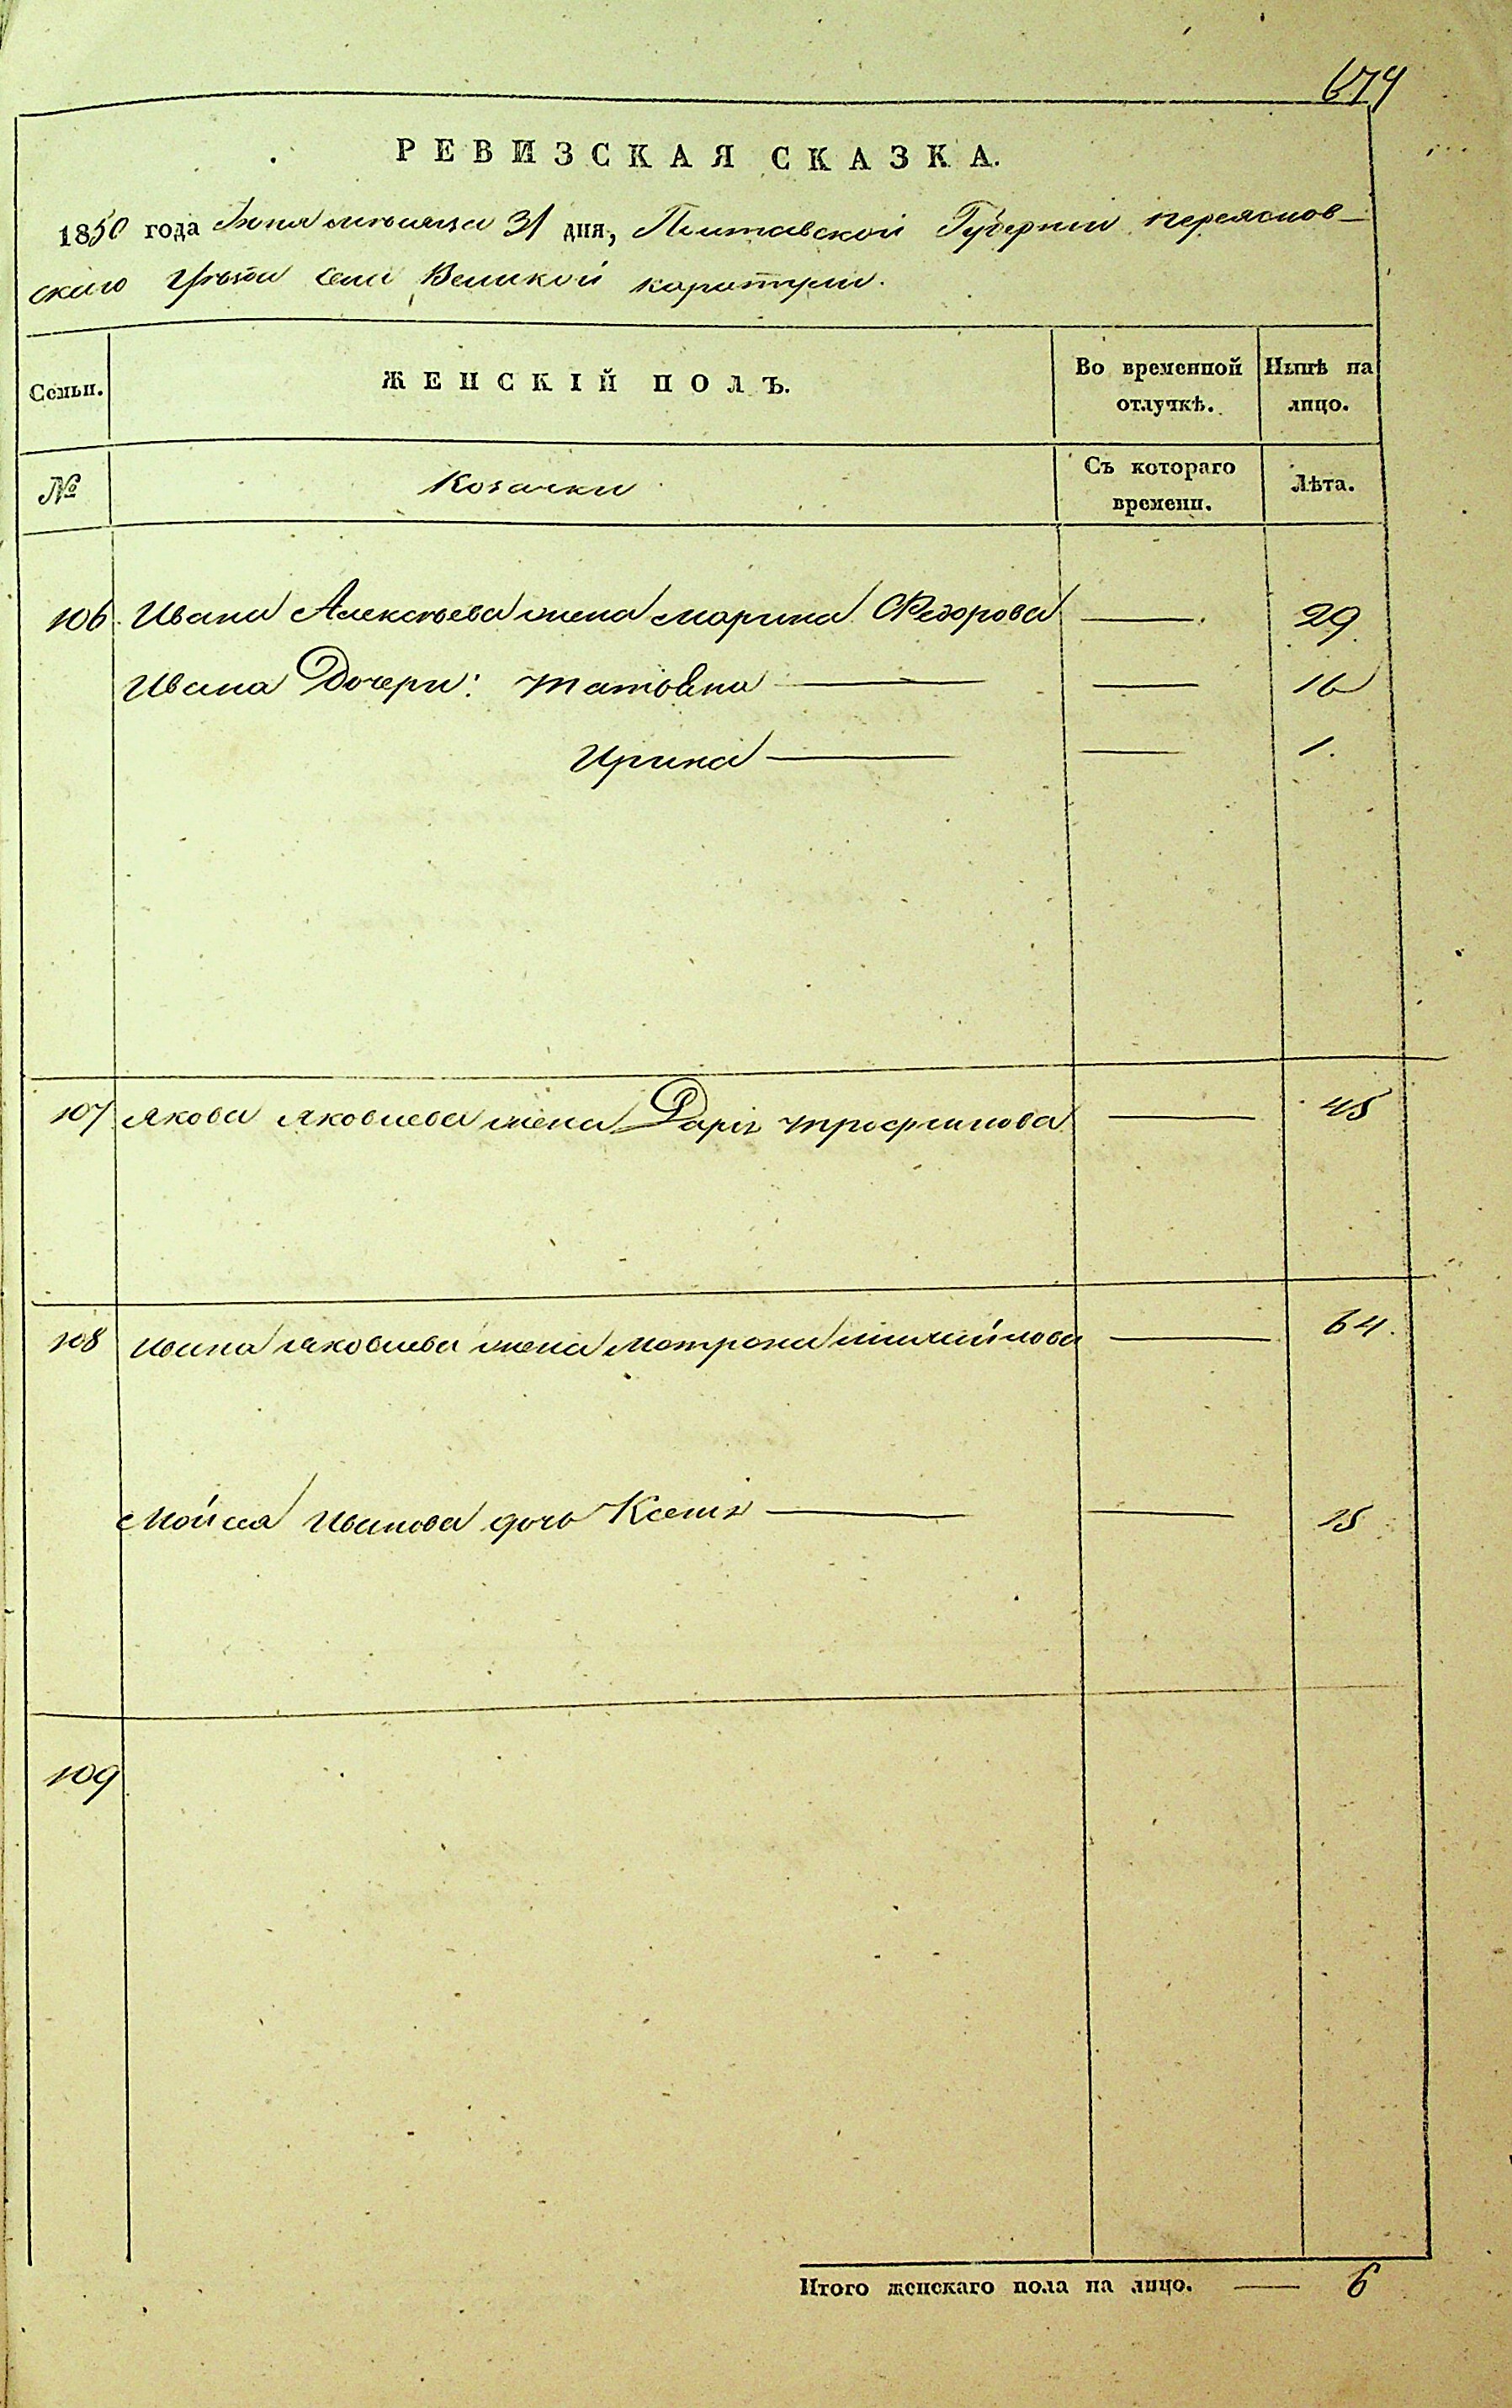 674
РЕВИЗСКАЯ СКАЗКА.
1850 года Іюня мѣсяца 31 дня, Полтавской Губерніи Переяслов-
ского Уѣзда села Великой Каратули.
Семьи. ЖЕНСКІЙ ПОЛЪ. Во временной отлучкѣ. Нынѣ на лицо.
№ Козачки Съ котораго времени. Лѣта.
106. Ивана Алексѣева жена Марина Федорова — 29
Ивана Дочери: Татьяна — — 16
Ирина — — 1.
107 Якова Яковлева жена Дарія Трофимова — 45
108 Ивана Яковлева жена Мотрона — 64.
Мойсея Иванова дочь Ксенія — — 15
109
Итого женскаго пола на лицо. — 6